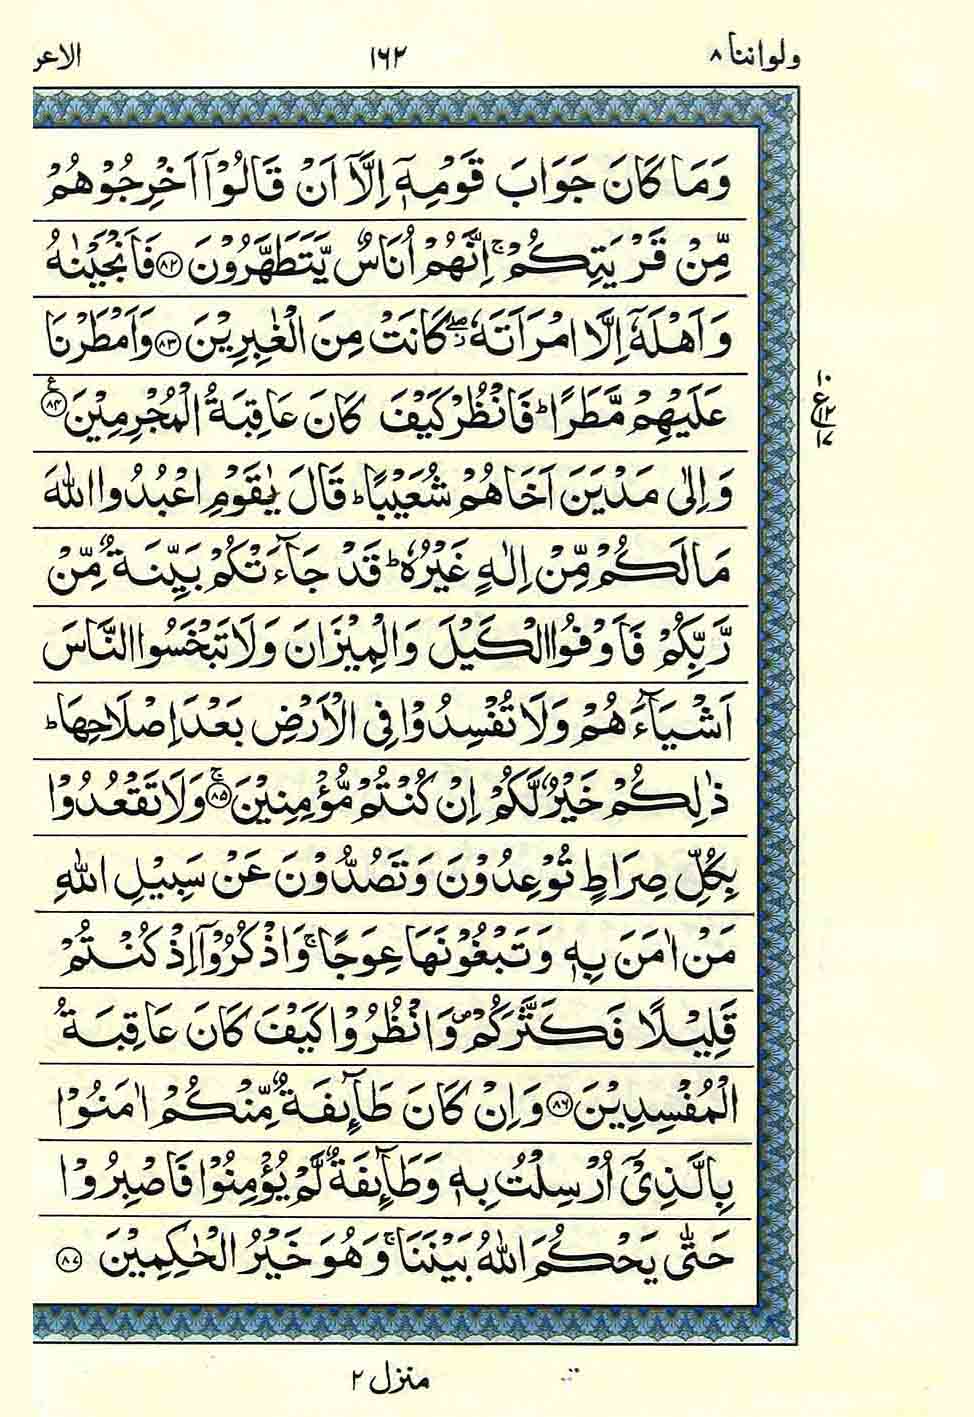 ولواننا ٨
١٦٢
الاعر
وَمَا كَانَ جَوَابَ قَوْمِهٖۤ اِلَّاۤ اَنْ قَالُوْۤا اَخْرِجُوْهُمْ
مِّنْ قَرْيَتِكُمْ ۚ اِنَّهُمْ اُنَاسٌ يَّتَطَهَّرُوْنَ ﴿٨٢﴾ فَاَنْجَيْنٰهُ
وَاَهْلَهٗۤ اِلَّا امْرَاَتَهٗ ۖ كَانَتْ مِنَ الْغٰبِرِيْنَ ﴿٨٣﴾ وَاَمْطَرْنَا
عَلَيْهِمْ مَّطَرًا ؕ فَانْظُرْ كَيْفَ كَانَ عَاقِبَةُ الْمُجْرِمِيْنَ ﴿٨٤﴾ ع
وَاِلٰى مَدْيَنَ اَخَاهُمْ شُعَيْبًا ؕ قَالَ يٰقَوْمِ اعْبُدُوا اللّٰهَ
مَا لَكُمْ مِّنْ اِلٰهٍ غَيْرُهٗ ؕ قَدْ جَآءَتْكُمْ بَيِّنَةٌ مِّنْ
رَّبِّكُمْ فَاَوْفُوا الْكَيْلَ وَالْمِيْزَانَ وَلَا تَبْخَسُوا النَّاسَ
اَشْيَآءَهُمْ وَلَا تُفْسِدُوْا فِى الْاَرْضِ بَعْدَ اِصْلَاحِهَا ؕ
ذٰلِكُمْ خَيْرٌ لَّكُمْ اِنْ كُنْتُمْ مُّؤْمِنِيْنَ ۚ ﴿٨٥﴾ وَلَا تَقْعُدُوْا
بِكُلِّ صِرَاطٍ تُوْعِدُوْنَ وَتَصُدُّوْنَ عَنْ سَبِيْلِ اللّٰهِ
مَنْ اٰمَنَ بِهٖ وَتَبْغُوْنَهَا عِوَجًا ۚ وَاذْكُرُوْۤا اِذْ كُنْتُمْ
قَلِيْلًا فَكَثَّرَكُمْ ۪ وَانْظُرُوْا كَيْفَ كَانَ عَاقِبَةُ
الْمُفْسِدِيْنَ ﴿٨٦﴾ وَاِنْ كَانَ طَآئِفَةٌ مِّنْكُمْ اٰمَنُوْا
بِالَّذِىْۤ اُرْسِلْتُ بِهٖ وَطَآئِفَةٌ لَّمْ يُؤْمِنُوْا فَاصْبِرُوْا
حَتّٰى يَحْكُمَ اللّٰهُ بَيْنَنَا ۚ وَهُوَ خَيْرُ الْحٰكِمِيْنَ ﴿٨٧﴾
١٠
ع ١٢
١٧
منزل ٢